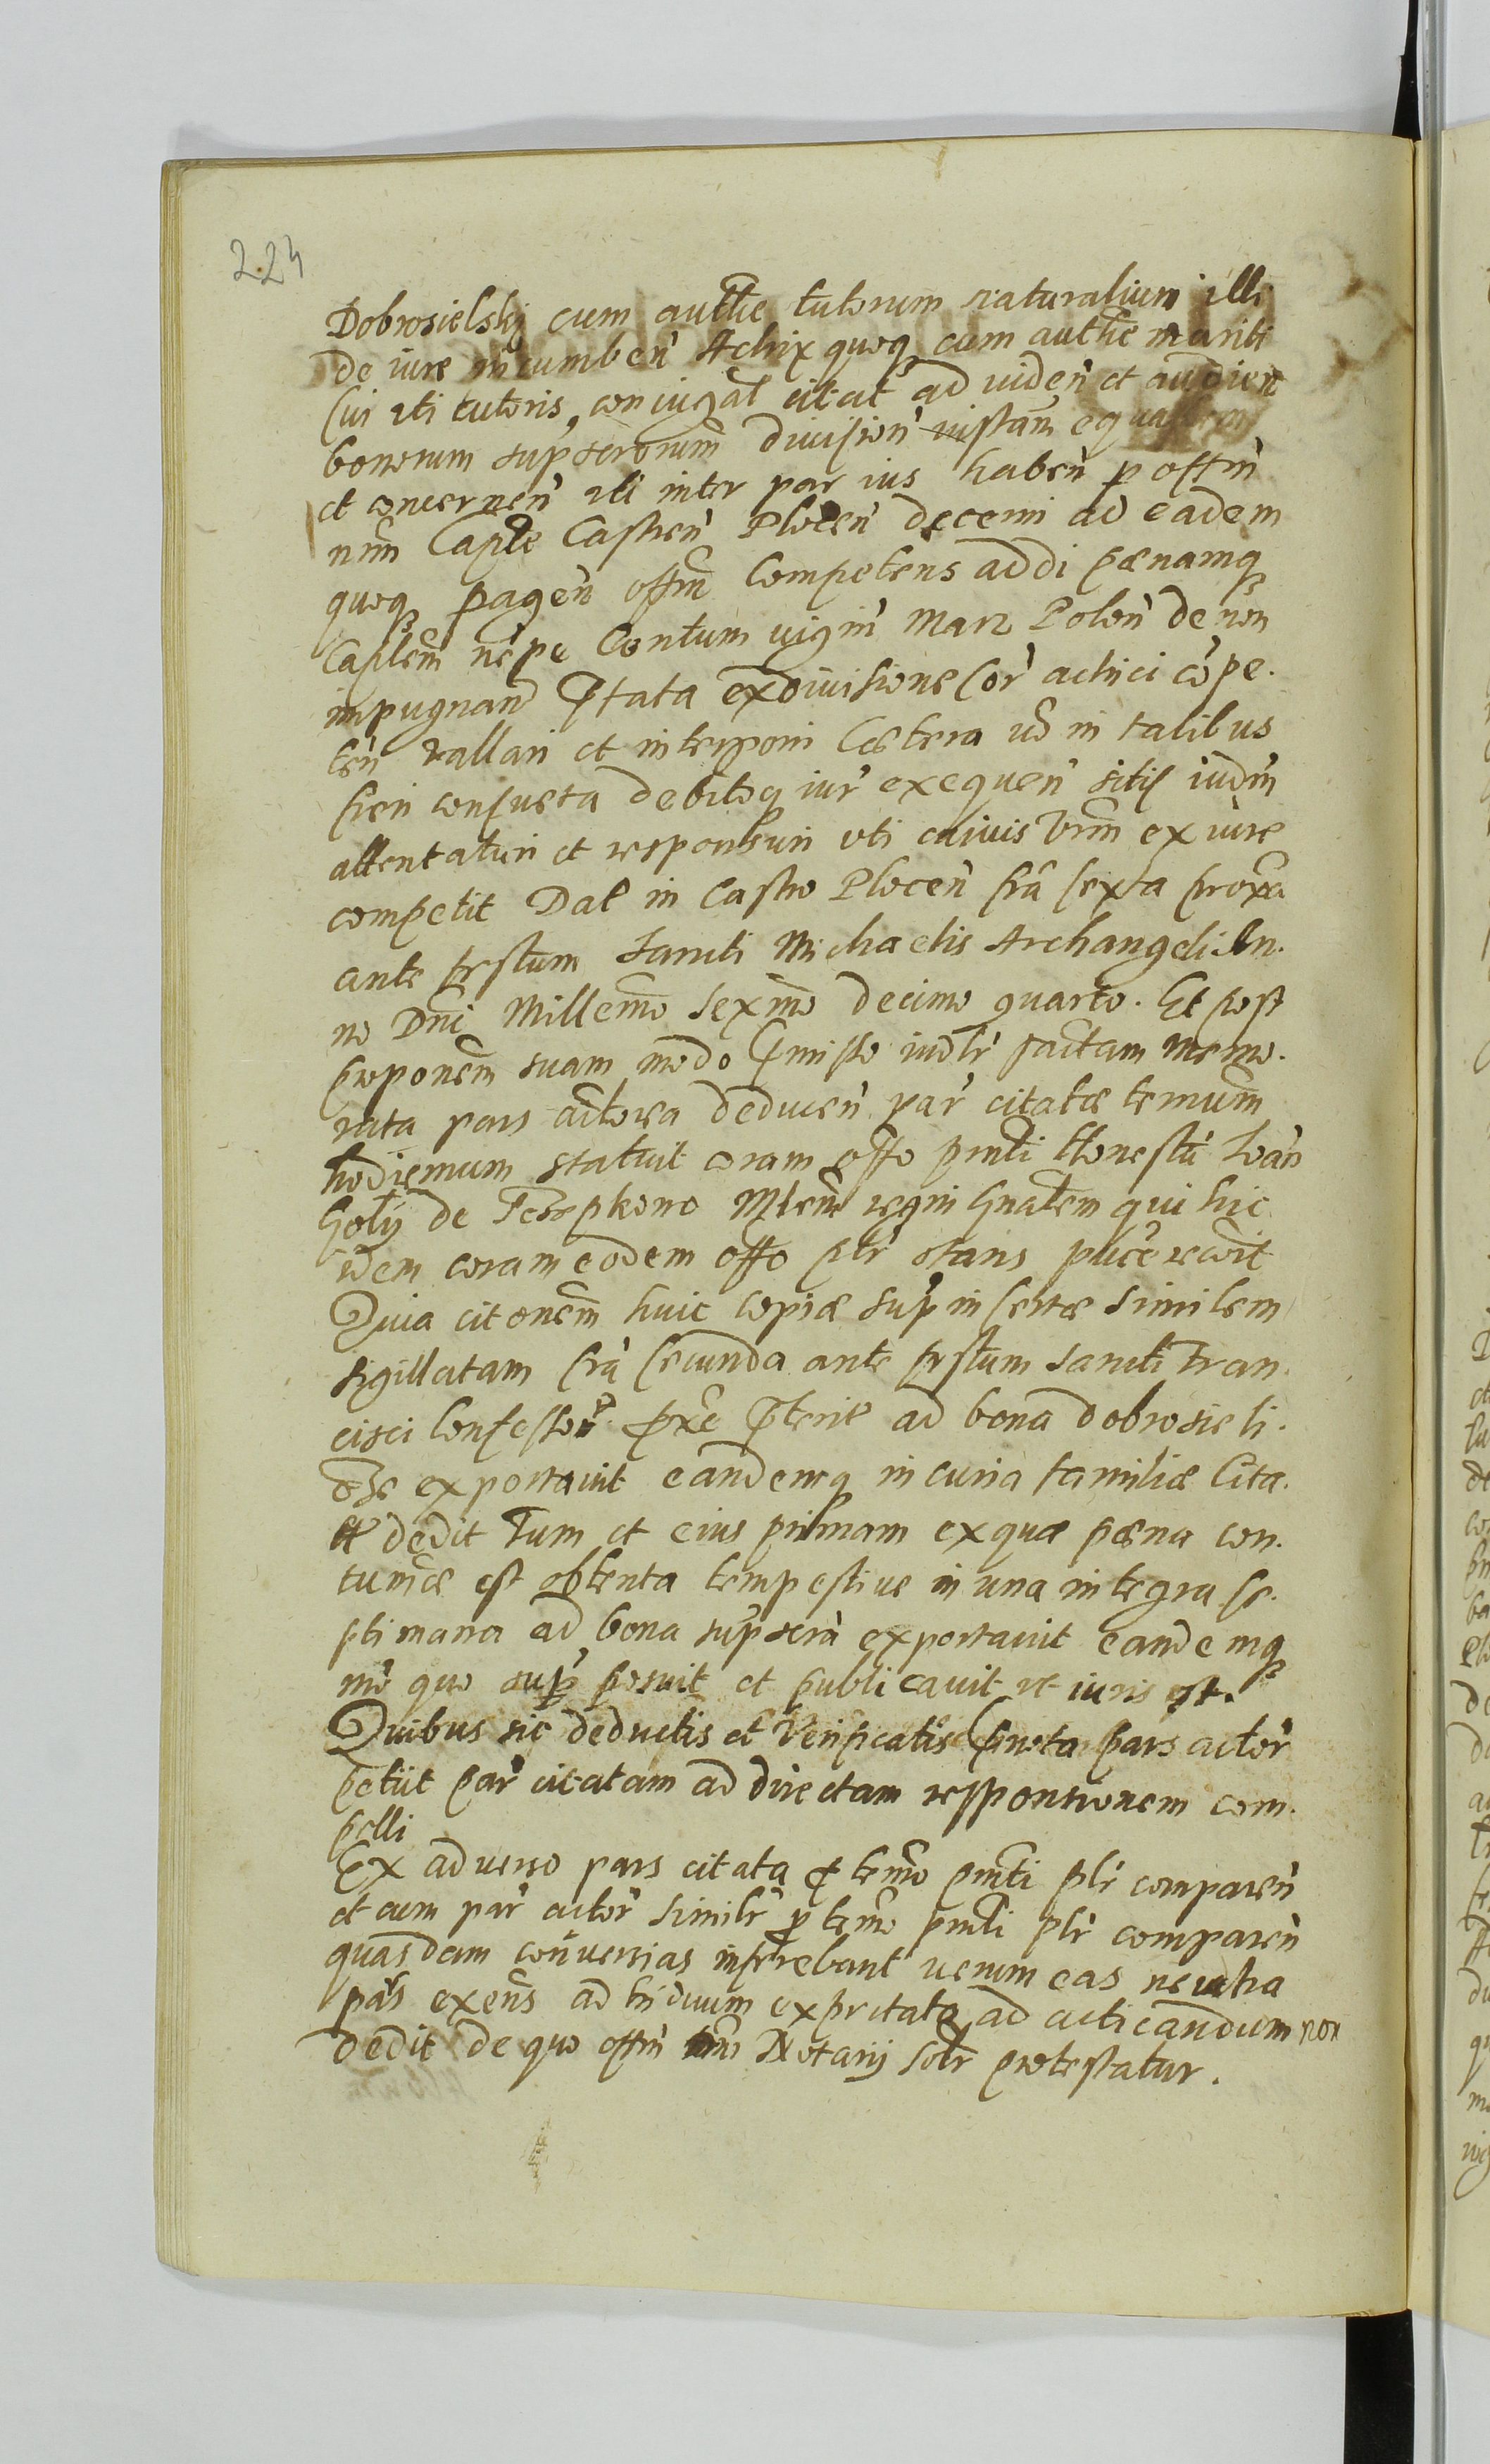 224
Dobrosielskj cum authe tutorum naturalium illi
de iure incumben Actrix quoq cum authe mariti
sui uti tutoris coniugal citat ad viden et audien
bonorum supscrorum division iustam equalem
et concernen uti inter par ius haben p offm
nrm Caple Castren Plocen decerni ad eadem
quoq peragen offm competens addi pænamq
Caplem nepe Centum vigin Marz Polon de non
impugnan pstata exdivisione sor actrici cope.
ten vallari et interponi Cætera vo in talibus
fieri consueta debitoq iur exequen sitis iudm
attentaturi et responsuri uti cuivis vrm ex iure
competit Dat in Castro Plocen fra sexta proxa
ante festum Sancti Michaelis Archangeli An.
no Dni Millemo Sexmo decimo quarto. Et post
proponem suam modo pmisso iudlr factam memo.
rata pars actorea deducen par citatæ termum
hodiernum statuit coram offo pnti Honestu Ioan
Goly de mlem regni gnalem qui hic
idem coram eodem offo plr stans puce recoit
Quia citonem huic copiæ sup insertæ similem
sigillatam fra secunda ante festum Sancti Fran.
cisci Confessor pxe pterit ad bona dobrosieli.
exportavit eandemq in curia familiæ Cita.
tæ dedit Tum et eius primam ex qua pæna con.
tumæ est obtenta tempestive in una integra se.
ptimana ad bona supscra exportavit eandemq
mo quo sup posuit et publicavit ut iuris est.
Quibus sic deductis et verificatis pnota pars actor
petiit par citatam ad directam responsionem com.
pelli
Ex adverso pars citata p termo pnti plr comparen
et cum par actor similr p termo pnti plr comparen
quasdam conversias inferebant verum eas neutra
pars exens ad triduum expectata ad acticandum non
dedit de quo offm Notarij solr protestatur.